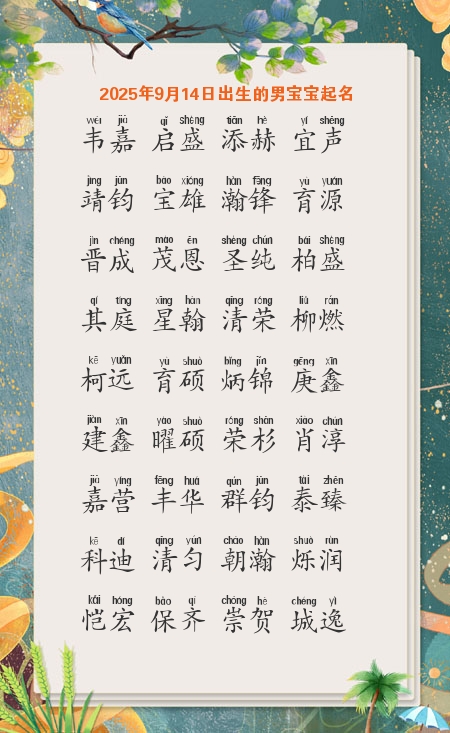 2025年9月14日出生的男宝宝起名
wéi jiā qǐ shèng tiān hè yí shēng
韦嘉 启盛 添赫 宜声
jìng jūn bǎo xióng hàn fēng yù yuán
靖钧 宝雄 瀚锋 育源
jìn chéng mào ēn shèng chún bǎi shèng
晋成 茂恩 圣纯 柏盛
qí tíng xīng hàn qīng róng liǔ rán
其庭 星翰 清荣 柳燃
kē yuǎn yù shuò bǐng jǐn gēng xīn
柯远 育硕 炳锦 庚鑫
jiàn xīn yào shuò róng shān xiào chún
建鑫 曜硕 荣杉 肖淳
jiā yíng fēng huá qún jūn tài zhēn
嘉营 丰华 群钧 泰臻
kē dí qīng yún cháo hàn shuò rùn
科迪 清匀 朝瀚 烁润
kǎi hóng bǎo qí chóng hè chéng yì
恺宏 保齐 崇贺 城逸